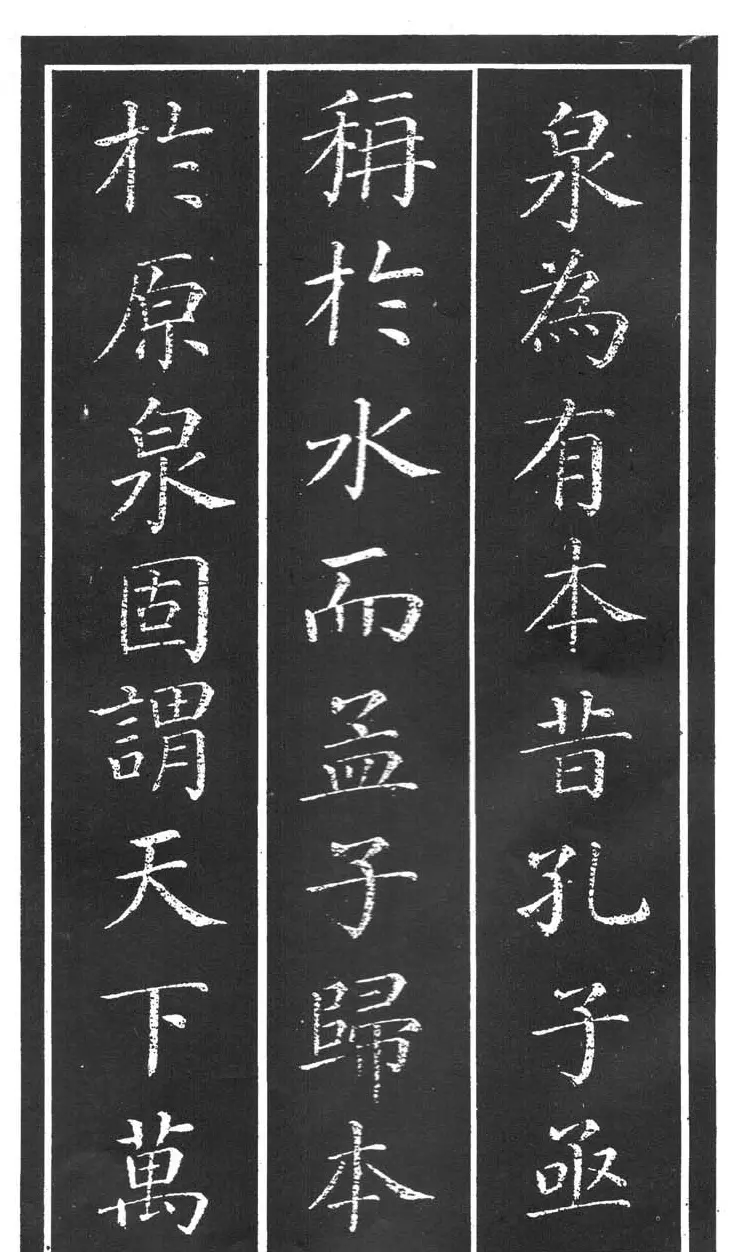 泉為有本昔孔子亟
稱於水而孟子歸本
於原泉固謂天下萬